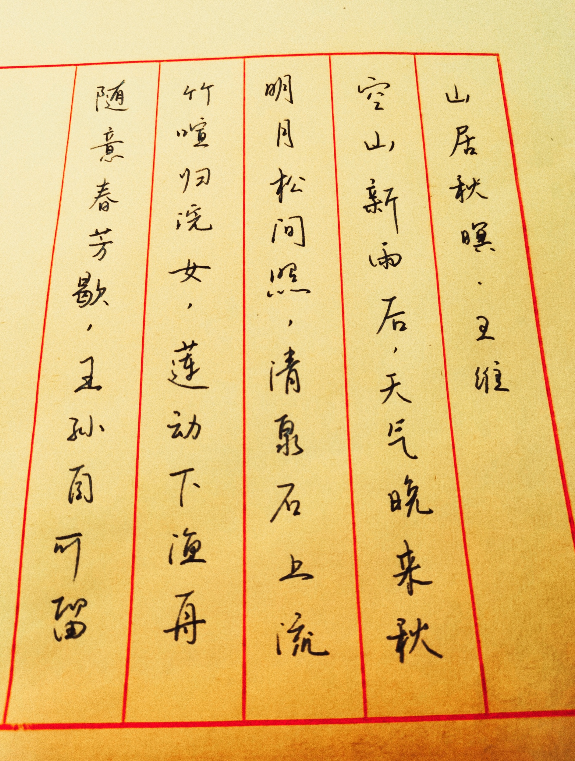 山居秋暝·王维
空山新雨后,天气晚来秋
明月松间照,清泉石上流
竹喧归浣女,莲动下渔舟
随意春芳歇,王孙自可留